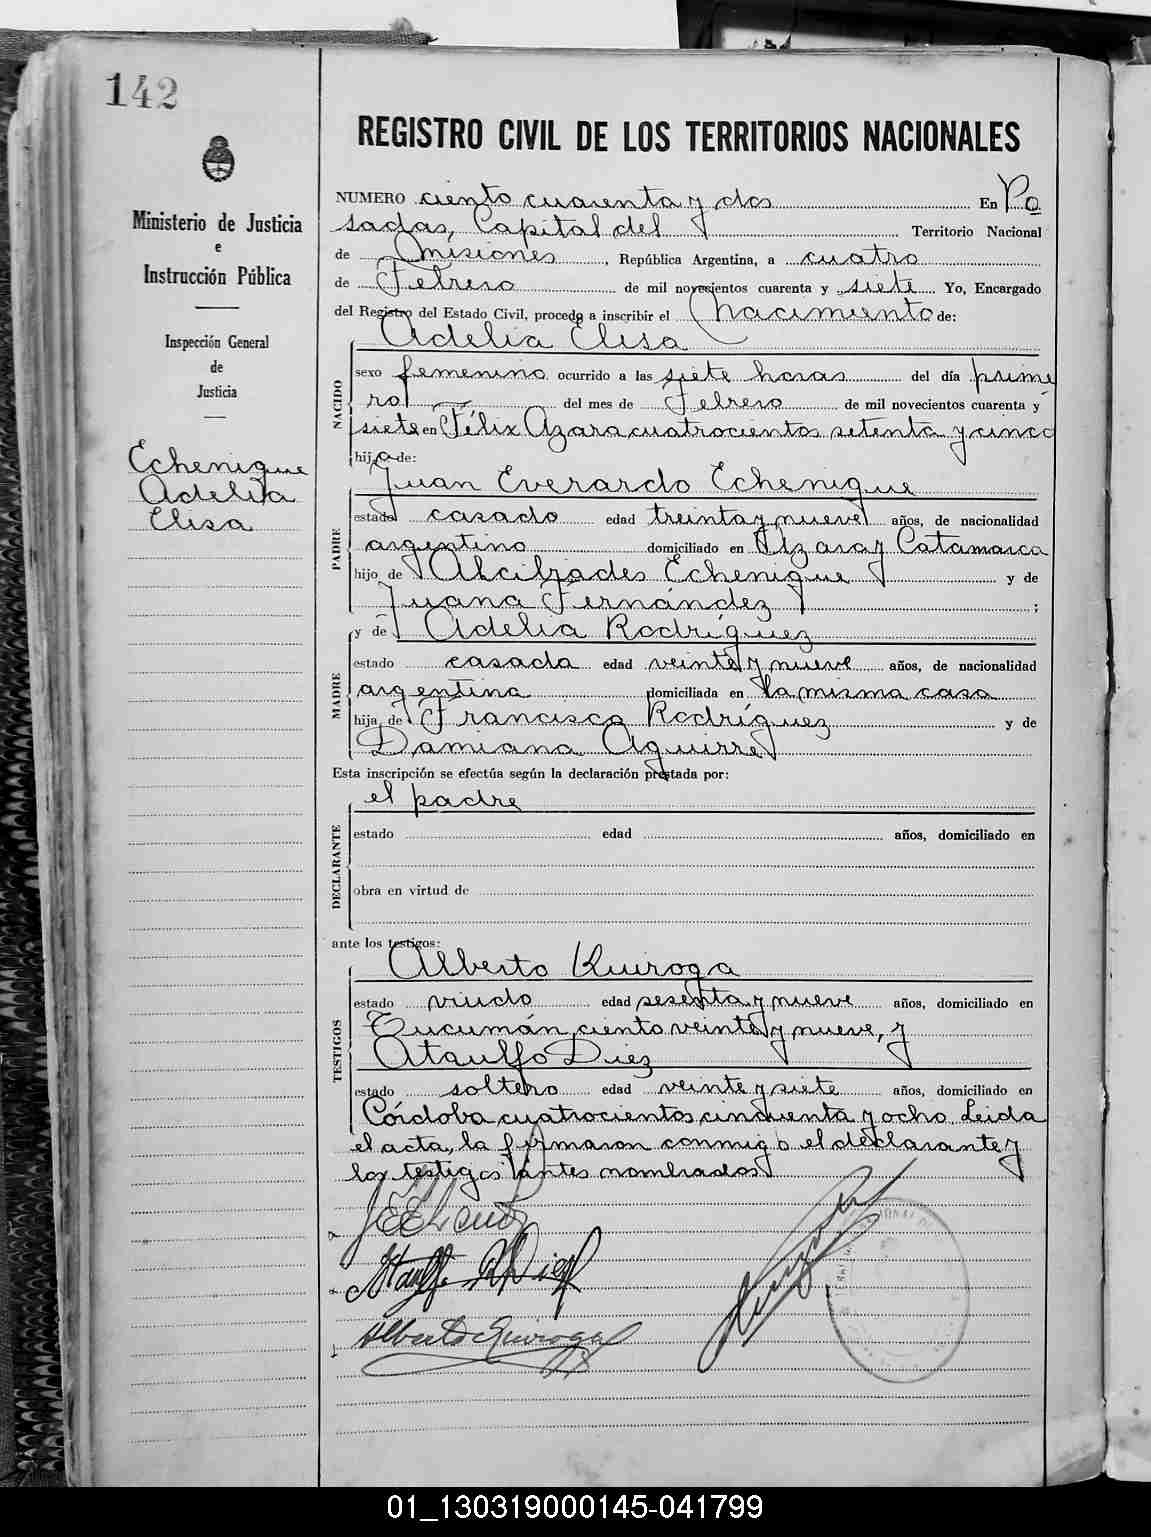 142
Ministerio de Justicia
e
Instrucción Pública
Inspección General
de
Justicia
Echenique
Adelia
Elisa
REGISTRO CIVIL DE LOS TERRITORIOS NACIONALES
NUMERO ciento cuarenta y dos En Po
sadas, Capital del Territorio Nacional
de Misiones, República Argentina, a cuatro
de Febrero de mil novecientos cuarenta y siete Yo, Encargado
del Registro del Estado Civil, procedo a inscribir el Nacimiento de:
Adelia Elisa
NACIDO
sexo femenino ocurrido a las siete horas del día prime
ro del mes de Febrero de mil novecientos cuarenta y
siete en Félix Azara cuatrocientos setenta y cinco
hija de:
Juan Everardo Echenique
PADRE
estado casado edad treinta y nueve años, de nacionalidad
argentino domiciliado en Azara y Catamarca
hijo de Echenique y de
Juana Fernández;
MADRE
y de Adelia Rodríguez
estado casada edad veinte y nueve años, de nacionalidad
argentina domiciliada en la misma casa
hija de Francisco Rodríguez y de
Damiana Aguirre
Esta inscripción se efectúa según la declaración prestada por:
el padre
DECLARANTE
estado edad años, domiciliado en
obra en virtud de
ante los testigos:
Alberto Quiroga
TESTIGOS
estado viudo edad sesenta y nueve años, domiciliado en
Tucumán ciento veinte y nueve, y
Ataulfo Diez
estado soltero edad veinte y siete años, domiciliado en
Córdoba cuatrocientos cincuenta y ocho. Leida
el acta, la firmaron conmigo el declarante y
los testigos antes nombrados
Ataulfo Diez
Alberto Quiroga
01_130319000145-041799